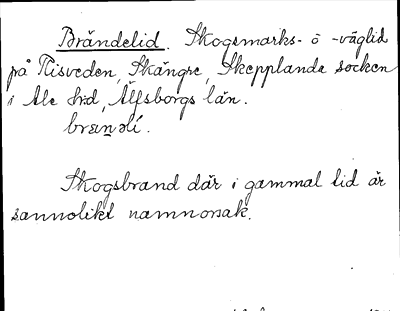 Brändelid. Skogsmarks- o -väglid
på Risveden, Skängre, Skepplanda socken
i Ale h:d, Älfsborgs län.
Skogsbrand där i gammal tid är
sannolikt namnorsak.